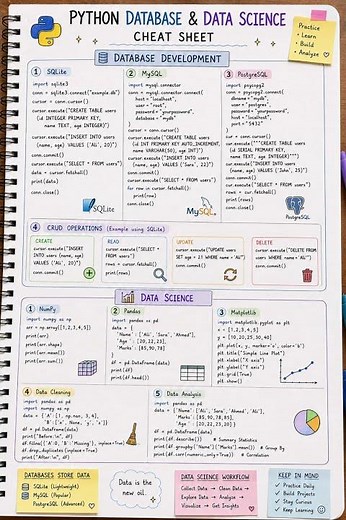 PYTHON DATABASE & DATA SCIENCE
CHEAT SHEET
Practice
• Learn
• Build
• Analyze ♥
DATABASE DEVELOPMENT
1 SQLite
import sqlite3
conn = sqlite3.connect('example.db')
cursor = conn.cursor()
cursor.execute("CREATE TABLE users
(id INTEGER PRIMARY KEY,
name TEXT, age INTEGER)")
cursor.execute("INSERT INTO users
(name, age) VALUES ('Ali', 20)")
conn.commit()
cursor.execute("SELECT * FROM users")
data = cursor.fetchall()
print(data)
conn.close()
SQLite
2 MySQL
import mysql.connector
conn = mysql.connector.connect(
host = "localhost",
user = "root",
password = "yourpassword",
database = "mydb"
)
cursor = conn.cursor()
cursor.execute("CREATE TABLE users
(id INT PRIMARY KEY AUTO_INCREMENT,
name VARCHAR(50), age INT)")
cursor.execute("INSERT INTO users
(name, age) VALUES ('Sara', 22)")
conn.commit()
cursor.execute("SELECT * FROM users")
for row in cursor.fetchall():
print(row)
conn.close()
MySQL
3 PostgreSQL
import psycopg2
conn = psycopg2.connect(
dbname = "mydb",
user = "postgres",
password = "yourpassword",
host = "localhost",
port = "5432"
)
cur = conn.cursor()
cur.execute("""CREATE TABLE users
(id SERIAL PRIMARY KEY,
name TEXT, age INTEGER)""")
cur.execute("INSERT INTO users
(name, age) VALUES ('John', 25)")
conn.commit()
cur.execute("SELECT * FROM users")
rows = cur.fetchall()
print(rows)
conn.close()
PostgreSQL
4 CRUD OPERATIONS (Example using SQLite)
CREATE
cursor.execute("INSERT
INTO users (name, age)
VALUES ('Ali', 20)")
conn.commit()
READ
cursor.execute("SELECT *
FROM users")
rows = cursor.fetchall()
print(rows)
UPDATE
cursor.execute("UPDATE users
SET age = 21 WHERE name = 'Ali'")
conn.commit()
DELETE
cursor.execute("DELETE FROM
users WHERE name = 'Ali'")
conn.commit()
DATA SCIENCE
1 NumPy
import numpy as np
arr = np.array([1,2,3,4,5])
print(arr)
print(arr.shape)
print(arr.mean())
print(arr.sum())
2 Pandas
import pandas as pd
data = {
'Name' : ['Ali', 'Sara', 'Ahmed'],
'Age' : [20,22,23],
'Marks' : [85,90,78]
}
df = pd.DataFrame(data)
print(df)
print(df.head())
3 Matplotlib
import matplotlib.pyplot as plt
x = [1,2,3,4,5]
y = [10,20,25,30,40]
plt.plot(x, y, marker='o', color='b')
plt.title("Simple Line Plot")
plt.xlabel("X axis")
plt.ylabel("Y axis")
plt.grid(True)
plt.show()
4 Data Cleaning
import pandas as pd
import numpy as np
data = {'A': [1, np.nan, 3, 4],
df = pd.DataFrame(data)
print("Before:\n", df)
df.drop_duplicates(inplace=True)
5 Data Analysis
import pandas as pd
data = {'Name' : ['Ali', 'Sara', 'Ahmed', 'Ali'],
df = pd.DataFrame(data)
print(df.describe()) # Summary Statistics
print(df.groupby('Name')['Marks'].mean()) # Group By
# Correlation
DATABASES STORE DATA
SQLite (Lightweight)
MySQL (Popular)
PostgreSQL (Advanced) ♥
Data is the
new oil.
DATA SCIENCE WORKFLOW
Collect Data → Clean Data →
Explore Data → Analyze →
Visualize → Get Insights ♥
KEEP IN MIND
✓ Practice Daily
✓ Build Projects
✓ Stay Curious
✓ Keep Learning